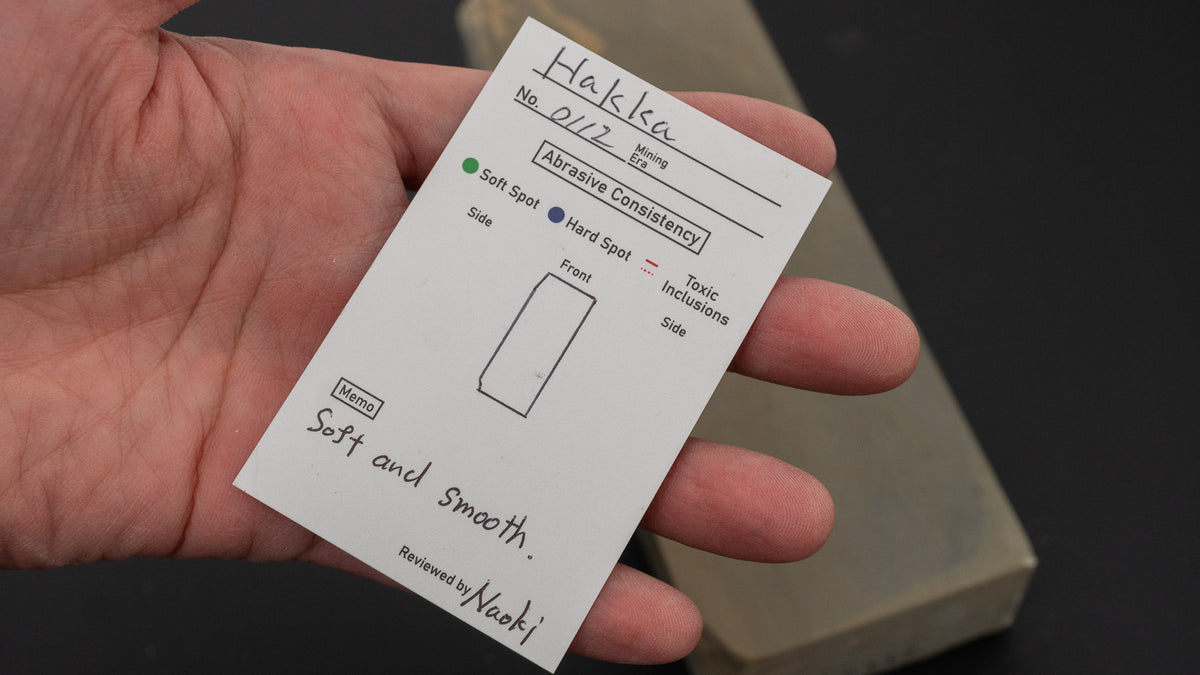 Hakka
No. 0112 Mining Era
Abrasive Consistency
Soft Spot Hard Spot Toxic Inclusions
Side Front Side
Memo
Soft and smooth.
Reviewed by Naoki